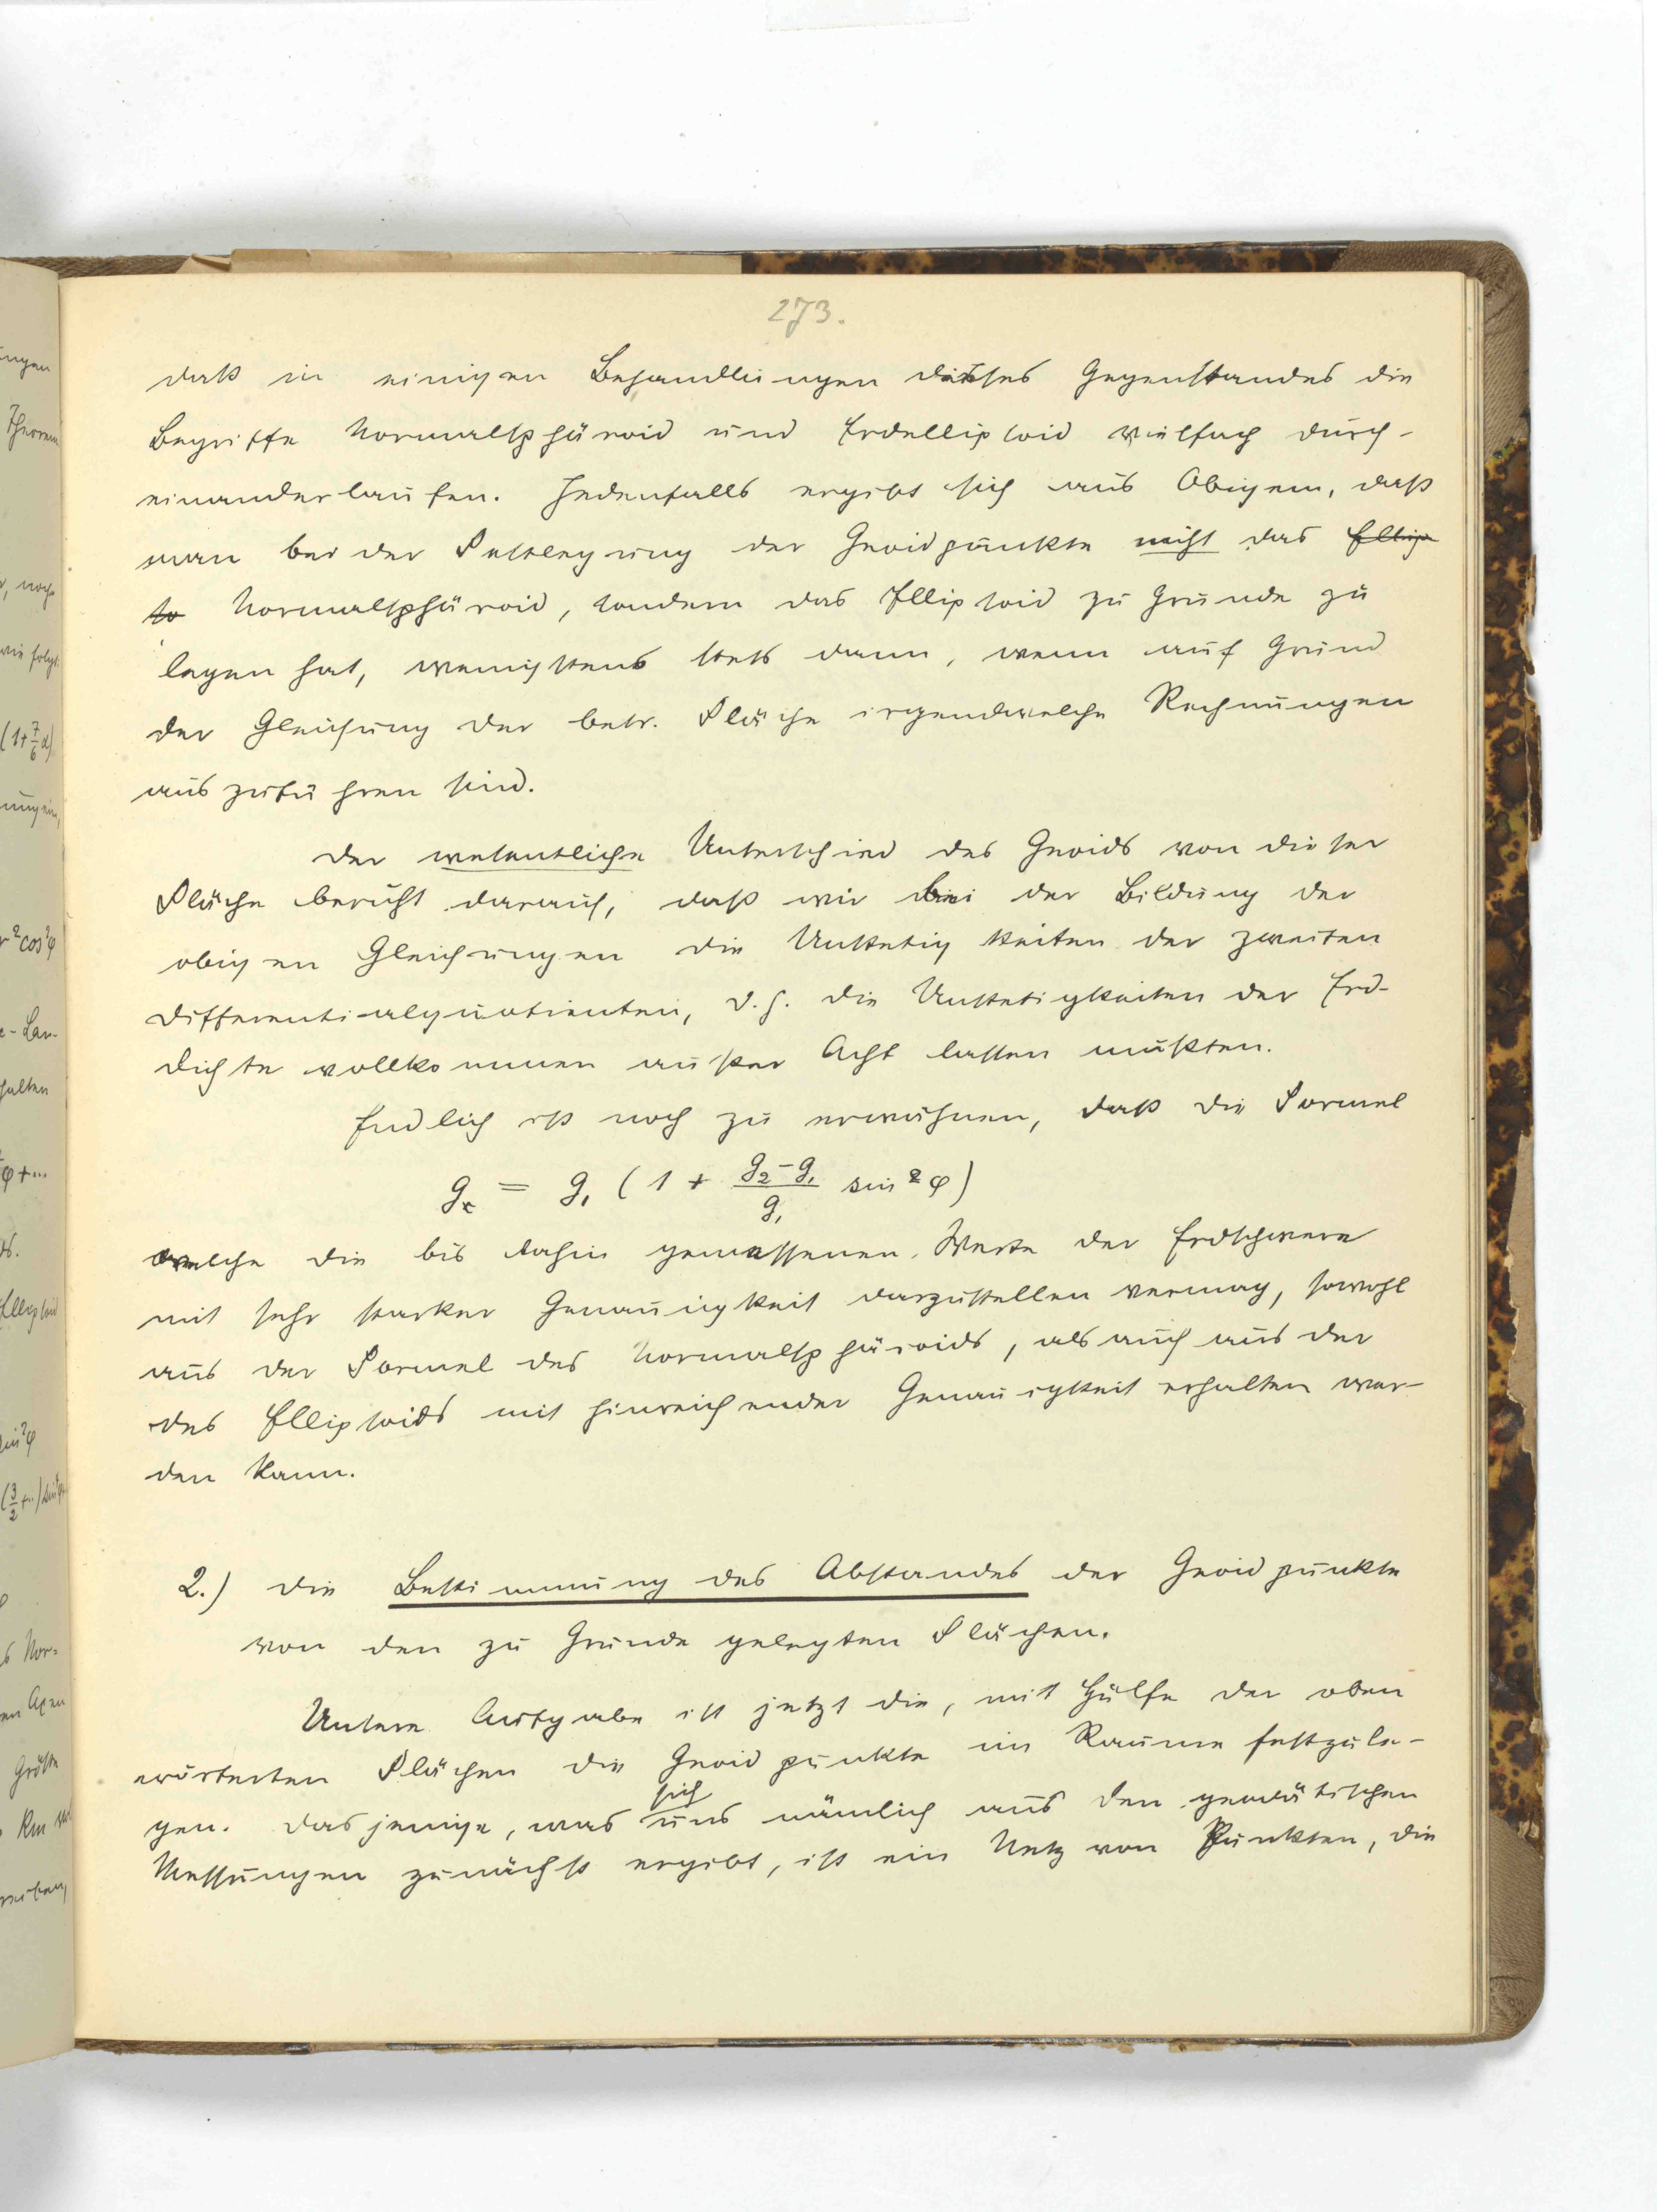 273.
daß in einigen Behandlungen dieses Gegenstandes die
Begriffe Normalsphäroid und Erdellipsoid vielfach durch-
einanderlaufen. Jedenfalls ergibt sich aus Obigem, daß
man bei der Festlegung der Geoidpunkte nicht das Ellip
so Normalsphäroid, sondern das Ellipsoid zu Grunde zu
legen hat, wenigstens stets dann, wenn auf Grund
der Gleichung der betr. Fläche irgendwelche Rechnungen
auszuführen sind.
Der wesentliche Unterschied des Geoids von dieser
Fläche beruht darauf, daß wir bei der Bildung der
obigen Gleichungen die Unstetigkeiten der zweiten
Differentialquotienten, d. h. die Unstetigkeiten der Erd-
dichte vollkommen außer Acht lassen mußten.
Endlich ist noch zu erwähnen, daß die Formel
g = g₁ (1 + (g₂ - g₁)/g₁ sin²φ)
welche die bis dahin gemessenen Werte der Erdschwere
mit sehr starker Genauigkeit darzustellen vermag, sowohl
aus der Formel des Normalsphäroids, als auch aus der
des Ellipsoids mit hinreichender Genauigkeit erhalten wer-
den kann.
2.) Die Bestimmung des Abstandes der Geoidpunkte
von den zu Grunde gelegten Flächen.
Unsere Aufgabe ist jetzt die, mit Hülfe der oben
erörterten Flächen die Geoidpunkte im Raume festzule-
gen. Dasjenige, was sich uns nämlich aus den geodätischen
Messungen zunächst ergibt, ist ein Netz von Punkten, die